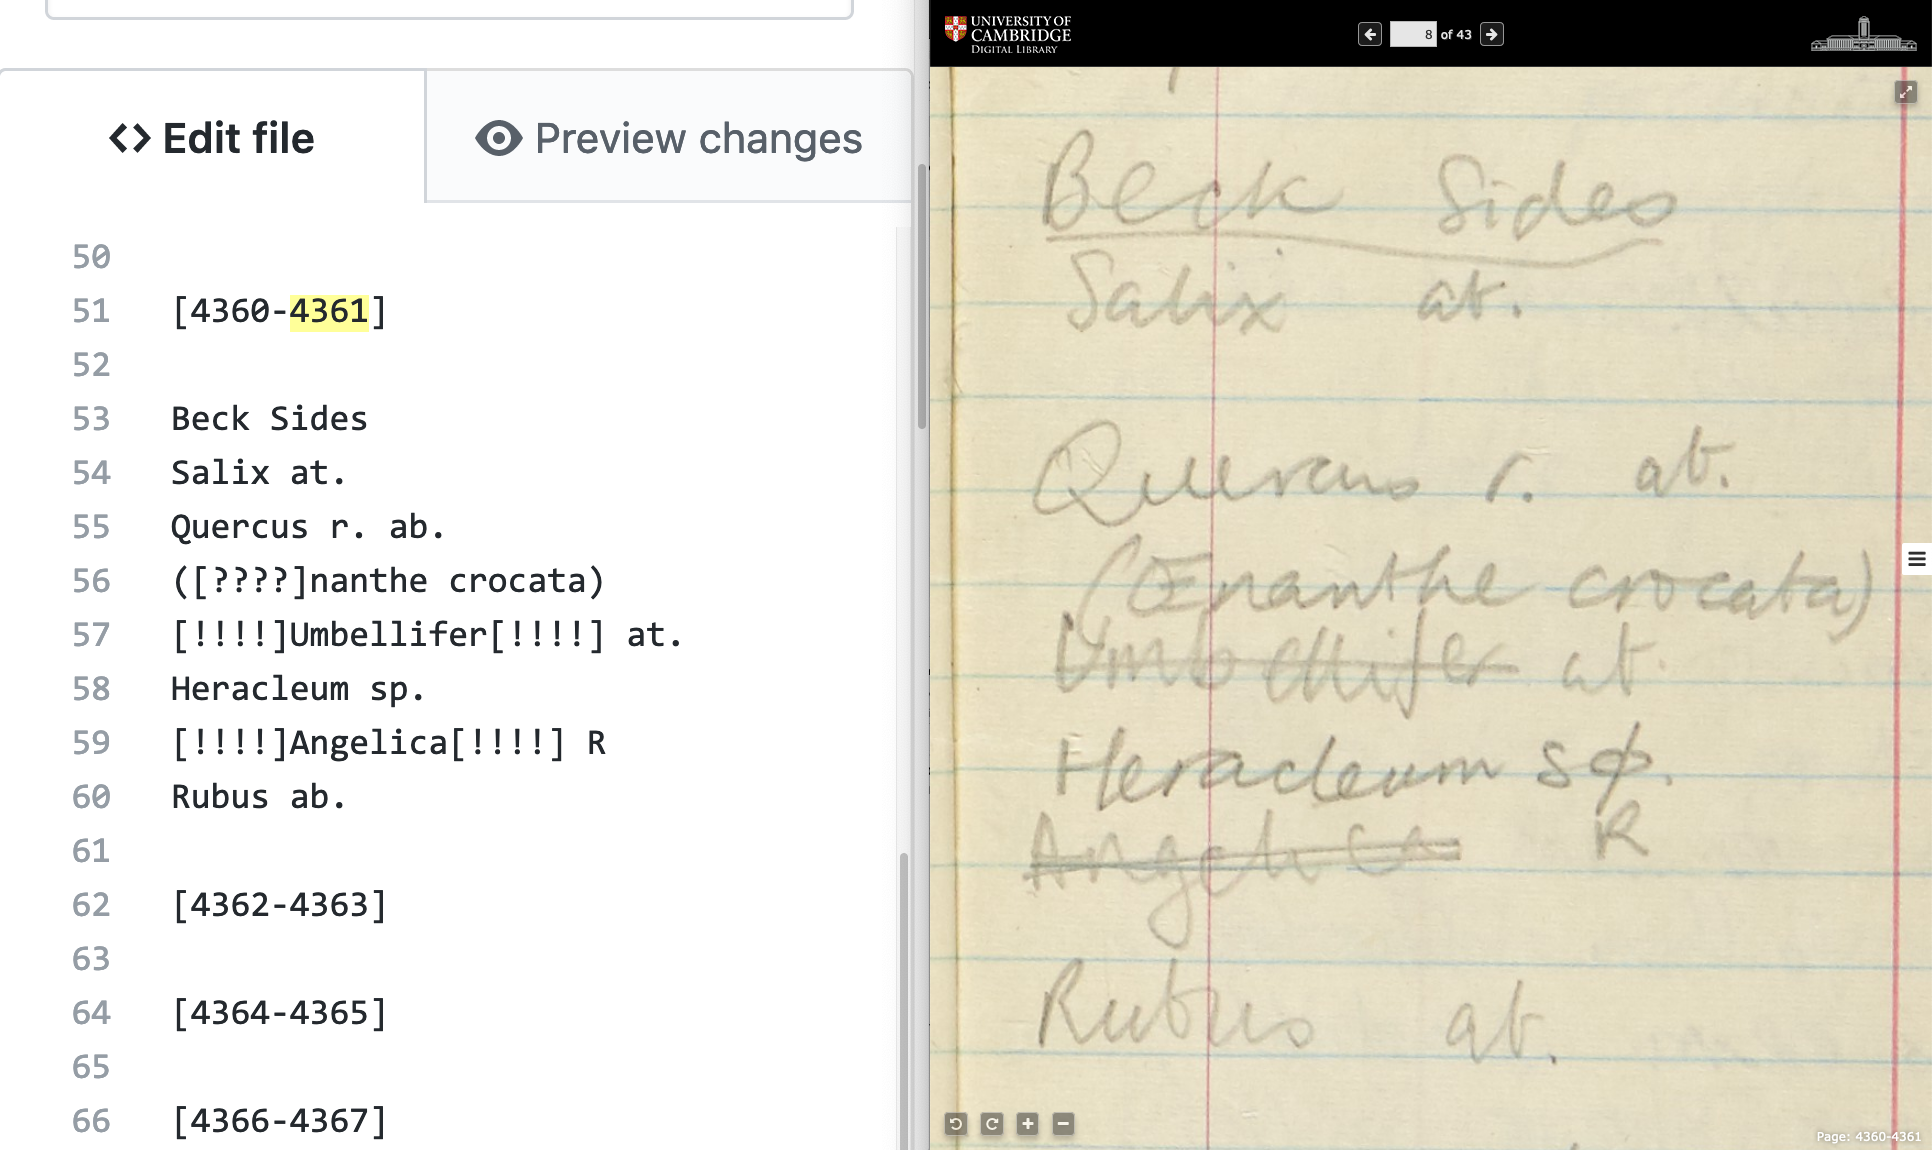 UNIVERSITY OF
CAMBRIDGE
DIGITAL LIBRARY
8 of 43
Edit file
Preview changes
50
51 [4360-4361]
52
53 Beck Sides
54 Salix at.
55 Quercus r. ab.
56 ([????]nanthe crocata)
57 [!!!!]Umbellifer[!!!!] at.
58 Heracleum sp.
59 [!!!!]Angelica[!!!!] R
60 Rubus ab.
61
62 [4362-4363]
63
64 [4364-4365]
65
66 [4366-4367]
Beck Sides
Salix at.
Quercus r. ab.
(Œnanthe crocata)
Umbellifer at.
Heracleum sp.
Angelica R
Rubus ab.
Page: 4360-4361